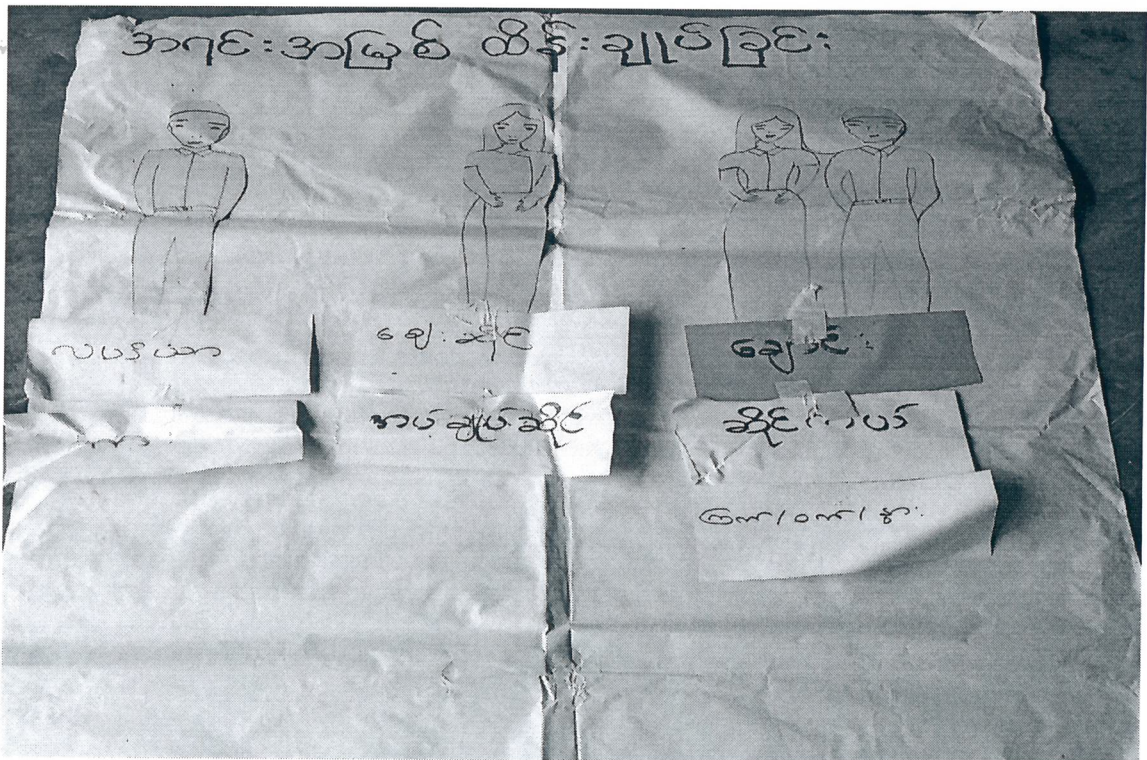 အရင်းအမြစ် ထိန်းချုပ်ခြင်း
လယ်ယာ
ဈေးဆိုင်
အပ်ချုပ်ဆိုင်
ဆိုင်ကယ်
ကြက်/ဝက်/နွား